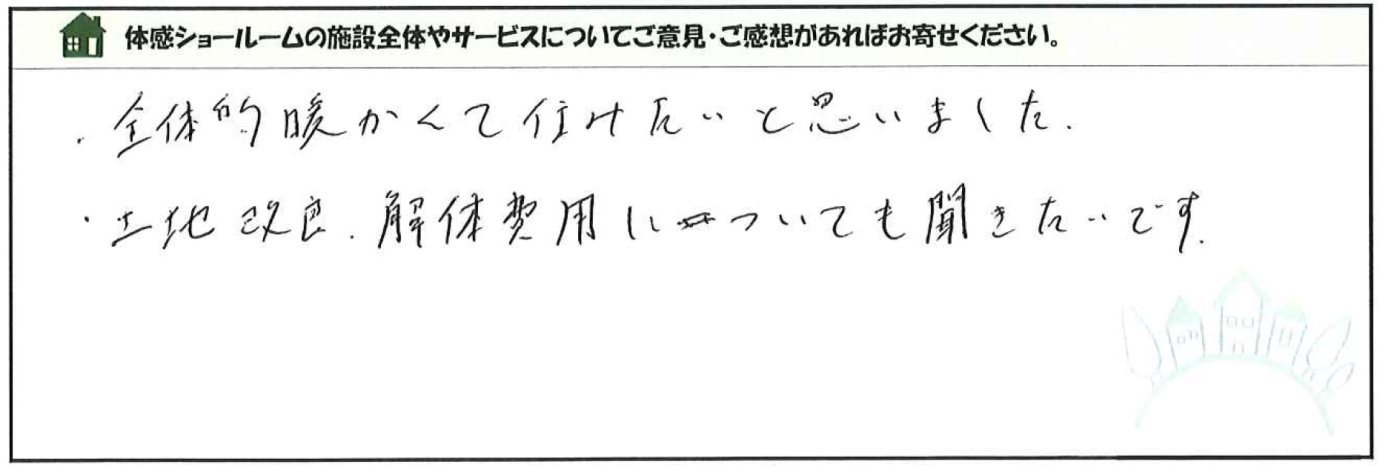 体感ショールームの施設全体やサービスについてご意見・ご感想があればお寄せください。
・全体的暖かくて住みたいと思いました.
・土地改良.解体費用についても聞きたいです.